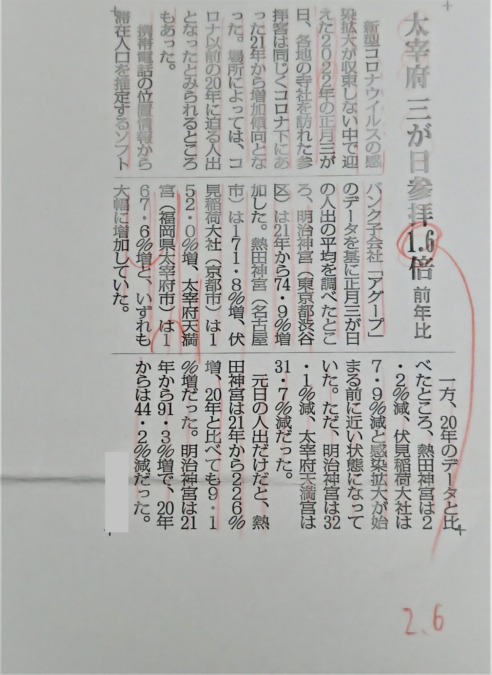 太宰府 三が日参拝1.6倍 前年比
新型コロナウイルスの感
染拡大が収束しない中で迎
えた2022年の正月三が
日、各地の寺社を訪れた参
拝客は同じくコロナ下にあ
った21年から増加傾向とな
った。場所によっては、コ
ロナ以前の20年に迫る人出
となったとみられるところ
もあった。
携帯電話の位置情報から
滞在人口を推定するソフト
バンク子会社「アグープ」
のデータを基に正月三が日
の人出の平均を調べたとこ
ろ、明治神宮（東京都渋谷
区）は21年から74・9％増
加した。熱田神宮（名古屋
市）は171・8％増、伏
見稲荷大社（京都市）は1
52・0％増、太宰府天満
宮（福岡県太宰府市）は1
67・6％増と、いずれも
大幅に増加していた。
一方、20年のデータと比
べたところ、熱田神宮は2
・2％減、伏見稲荷大社は
7・9％減と感染拡大が始
まる前に近い状態になって
いた。ただ、明治神宮は32
・1％減、太宰府天満宮は
31・7％減だった。
元日の人出だけだと、熱
田神宮は21年から226％
増、20年と比べても9・1
％増だった。明治神宮は21
年から91・3％増で、20年
からは44・2％減だった。
2.6